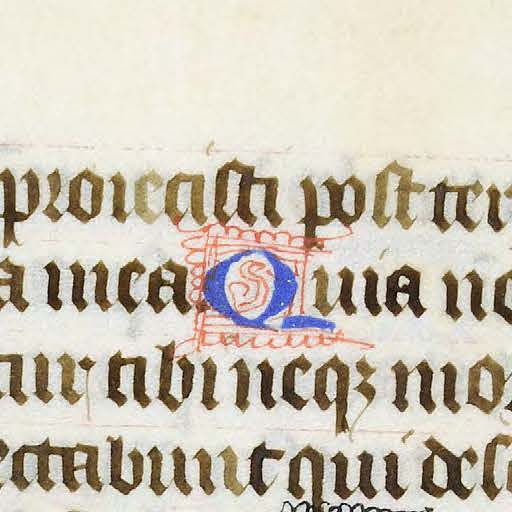 proiecisti post ter
a mea Quia no
tur tibi neqꝫ mor
ectabunt qui desc